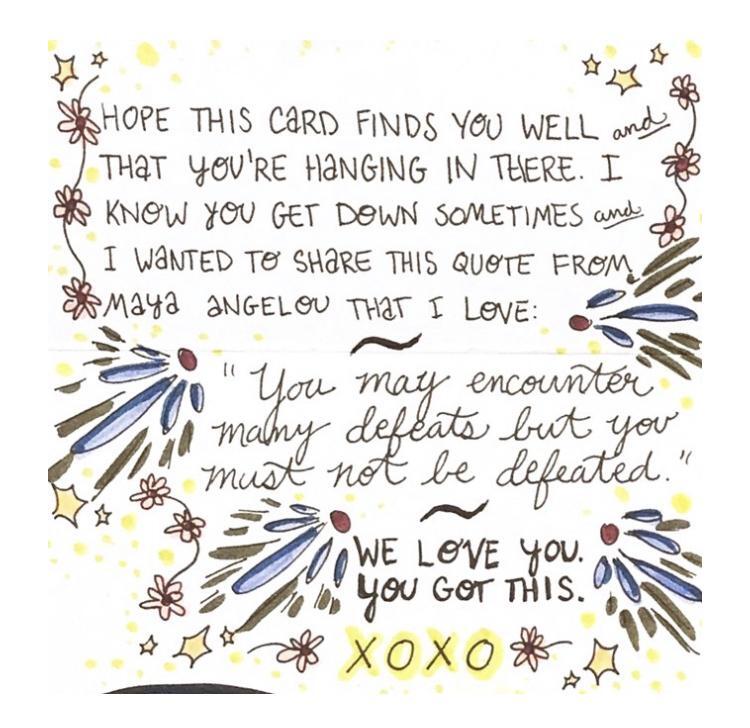 HOPE THIS CaRD FINDS YOU WELL and
THaT YOU'RE HaNGING IN THERE. I
KNOW YOU GET DOWN SOMETIMES and
I WaNTED TO SHaRE THIS QUOTE FROM
MaYa aNGELOU THaT I LOVE:
~
"You may encounter
many defeats but you
must not be defeated."
~
WE LOVE YOU.
YOU GOT THIS.
XOXO